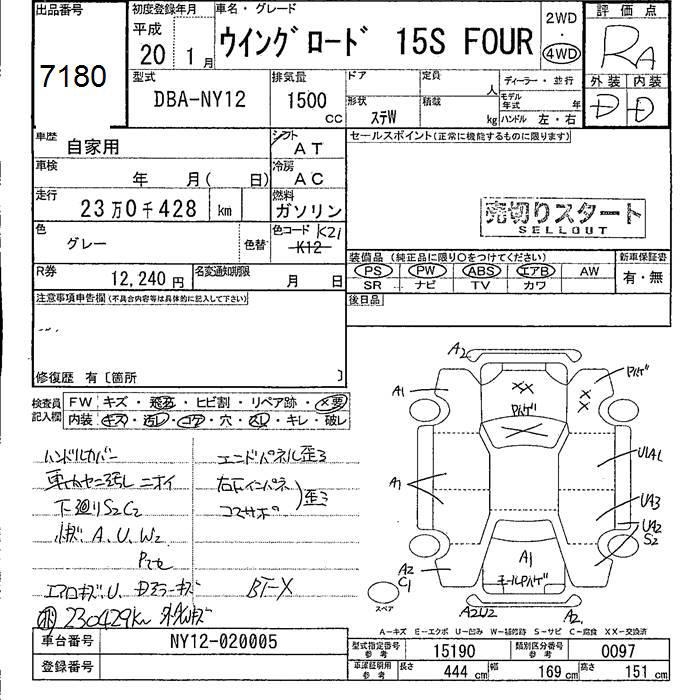 出品番号
7180
初度登録年月
平成
20 1月
車名・グレード
ウイングロード 15S FOUR
2WD
・
4WD
評価点
RA
外装 内装
D D
型式
DBA-NY12
排気量
1500
CC
ドア
定員
人
ディーラー・並行
形状
ステW
積載
kg
モデル年式 年
ハンドル 左・右
車歴
自家用
シフト
AT
車検
年 月( 日)
冷房
AC
走行
23万0千428 km
燃料
ガソリン
色
グレー
色替
色コード K21
K12
R券
12,240円
名変通知期限
月 日
セールスポイント(正常に機能するものに限ります)
売切りスタート
SELLOUT
装備品(純正品に限り○をつけてください)
PS PW ABS エアB AW
SR ナビ TV カワ
新車保証書
有・無
後日品
注意事項申告欄(不具合内容等は具体的に記入して下さい)
修復歴 有〔箇所 〕
検査員
記入欄
FW キズ・飛石・ヒビ割・リペア跡・×要
内装 キズ・汚レ・コゲ・穴・スレ・キレ・破レ
ハンドルカバー
ニオイ
下廻りS2C2
A、U、W2
エアロキズ、U、
230429km
エンドパネル歪ミ
右
歪ミ
コアサポ
BT-X
A2
A1
ハゲ
XX
XX
ハゲ
U1A1
A1
UA3
UA2
S2
A2
C1
A1
モールハゲ
A2U2
A2
スペア
A-キズ E-エクボ U-凹み W-補修跡 S-サビ C-腐食 XX-交換済
車台番号
NY12-020005
登録番号
型式指定番号
参考
15190
類別区分番号
参考
0097
車庫証明用
参考
長さ 444 cm 幅 169 cm 高さ 151 cm